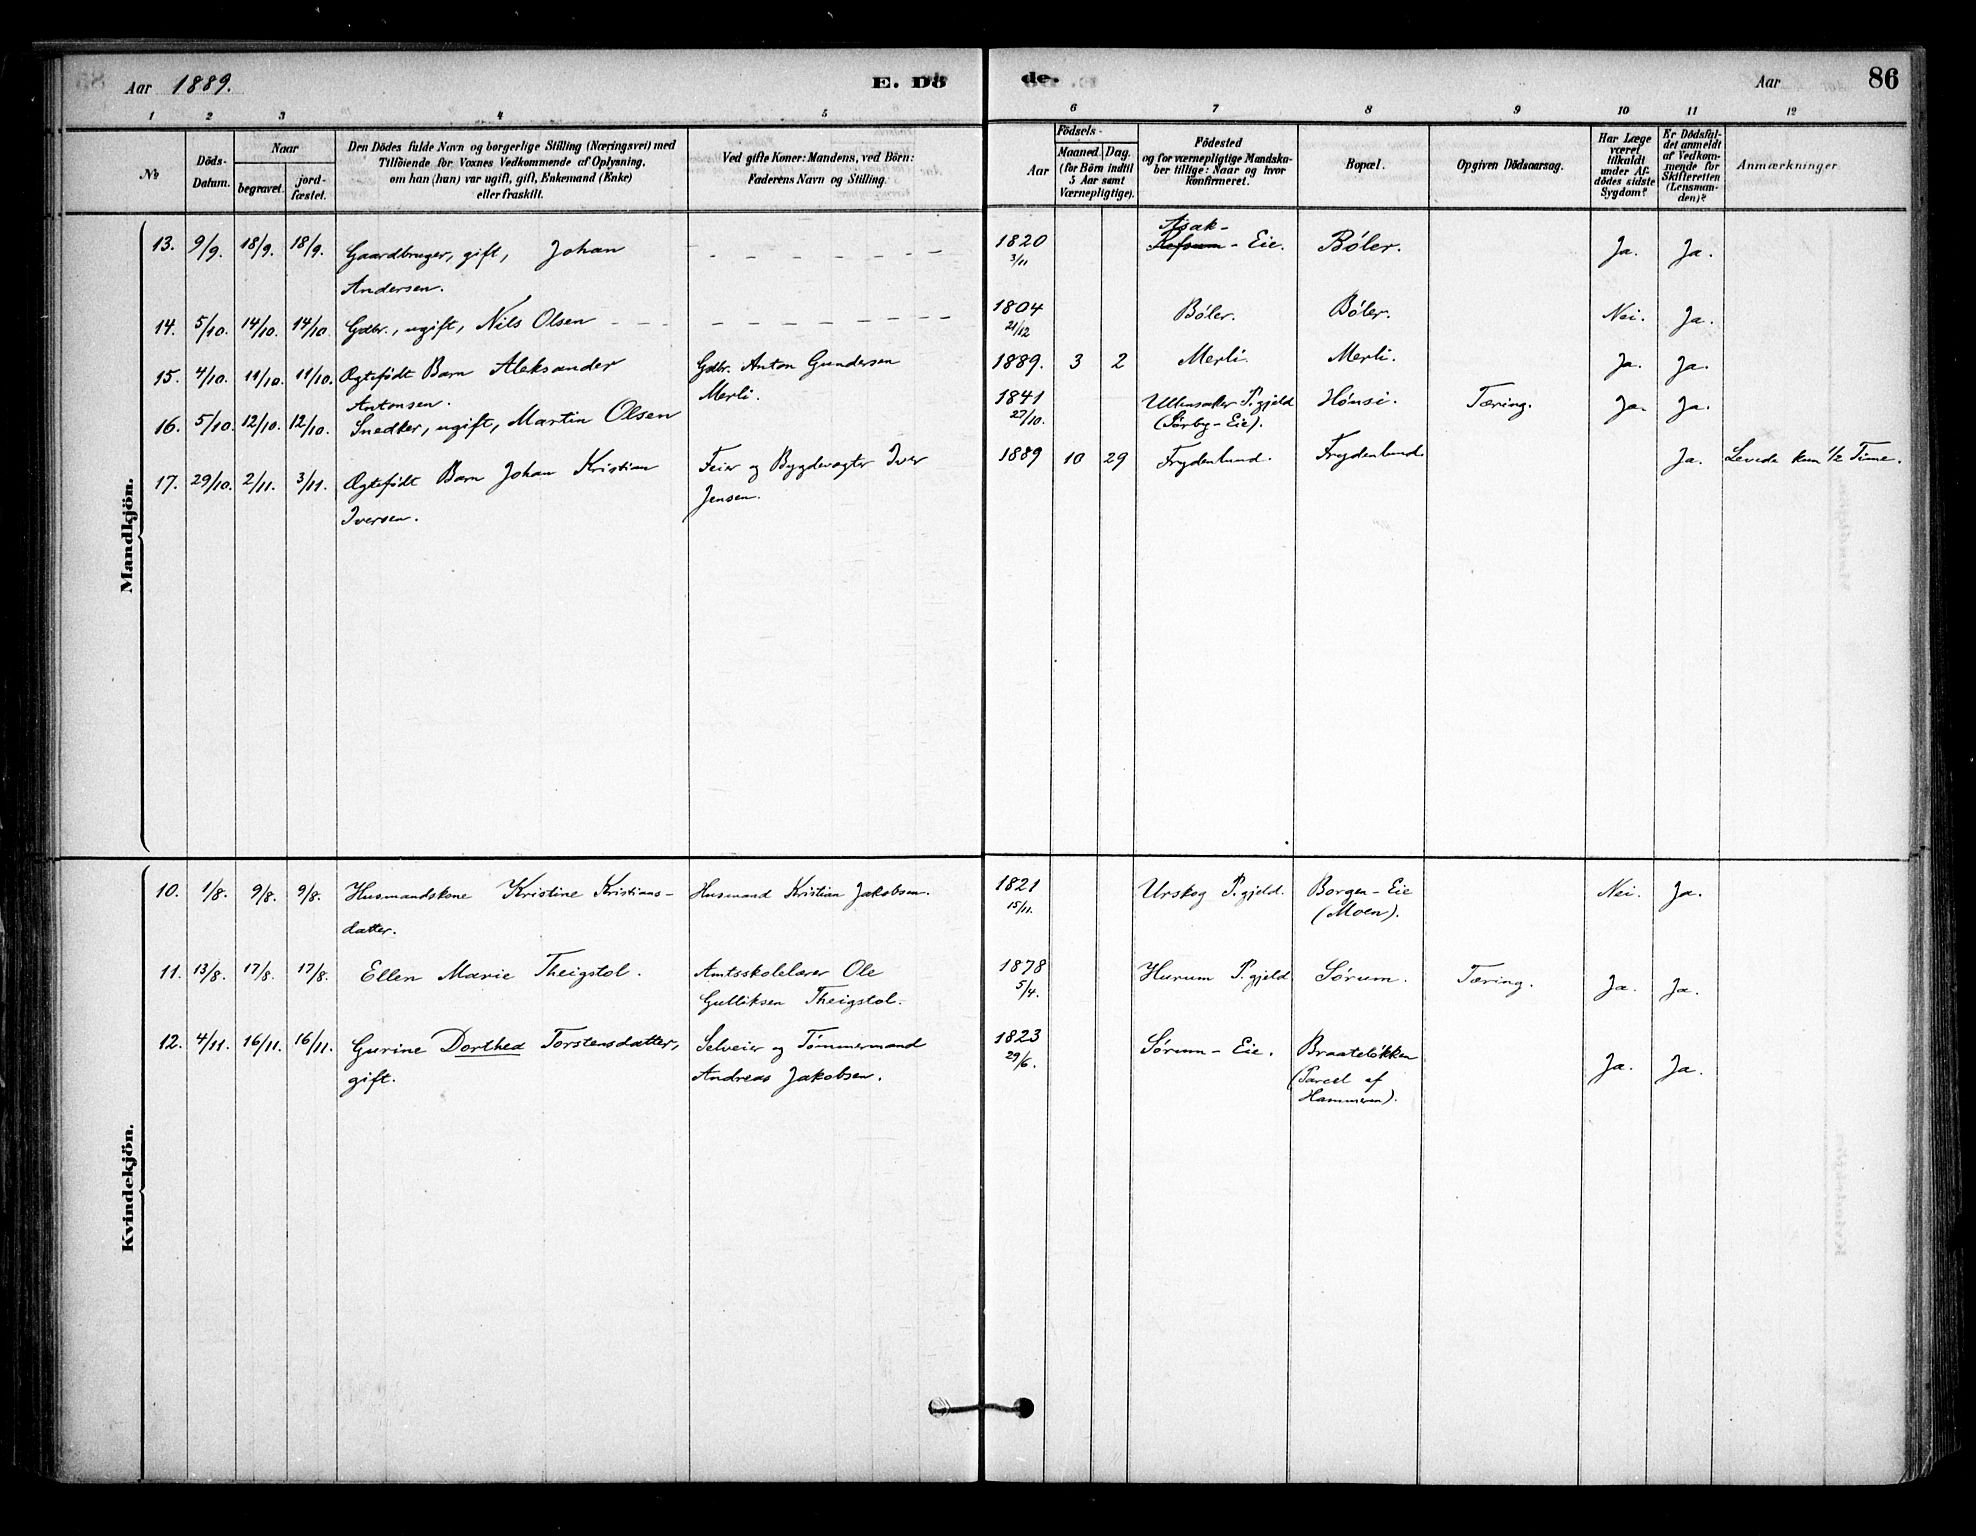 Aar 1889.
E. Dö
de.
Aar
86
1 2 3 4 5
6 7 8 9 10 11 12
№
Döds-
Datum.
Naar
begravet.
jord-
fæstet.
Den Dödes fulde Navn og borgerlige Stilling (Næringsvei) med
Tilföiende for Voxnes Vedkommende af Oplysning,
om han (hun) var ugift, gift, Enkemand (Enke)
eller fraskilt.
Ved gifte Koner: Mandens, ved Börn:
Faderens Navn og Stilling.
Födsels-
Aar
Maaned. Dag.
(for Börn indtil
5 Aar samt
Værnepligtige).
Födested
og for værnepligtige Mandska-
ber tillige: Naar og hvor
Konfirmeret.
Bopæl.
Opgiven Dödsaarsag.
Har Læge
været
tilkaldt
under Af-
dödes sidste
Sygdom?
Er Dödsfal-
det anmeldt
af Vedkom-
mende for
Skifteretten
(Lensman-
den)?
Anmærkninger
Mandkjön.
13. 9/9. 18/9. 18/9. Gaardbruger, gift, Johan
Andersen.
1820
3/11
Asak-
Refsum - Eie. Böler. Ja. Ja.
14. 5/10. 14/10. 14/10. Gdbr., ugift, Nils Olsen
1804
21/12
Böler. Böler. Nei. Ja.
15. 4/10. 11/10. 11/10. Ægtefödt Barn Aleksander
Antonsen.
Gdbr. Anton Gundersen
Merli.
1889. 3 2 Merli. Merli. Ja. Ja.
16. 5/10. 12/10. 12/10. Snedker, ugift, Martin Olsen
1841
27/10.
Ullensaker P.gjeld
(Sörby-Eie).
Hönsi. Tæring. Ja. Ja.
17. 29/10. 2/11. 3/11. Ægtefödt Barn Johan Kristian
Iversen.
Feier og Bygdevægter Iver
Jensen.
1889 10 29 Frydenlund. Frydenlund Ja. Levede kun 1/2 Time.
Kvindekjön.
10. 1/8. 9/8. 9/8. Husmandskone Kristine Kristians-
datter.
Husmand Kristian Jakobsen.
1821
15/11.
Urskog P.gjeld. Borgen-Eie
(Moen).
Nei. Ja.
11. 13/8. 17/8. 17/8. Ellen Marie Theigstol.
Amtsskolelærer Ole
Gulliksen Theigstol.
1878
5/4.
Hurum P.gjeld Sörum. Tæring. Ja. Ja.
12. 4/11. 16/11. 16/11. Gurine Dorthea Torstensdatter,
gift.
Selveier og Tömmermand
Andreas Jakobsen.
1823
29/6.
Sörum-Eie. Braatelökken
(Parcel af
Hammeren).
Ja. Ja.